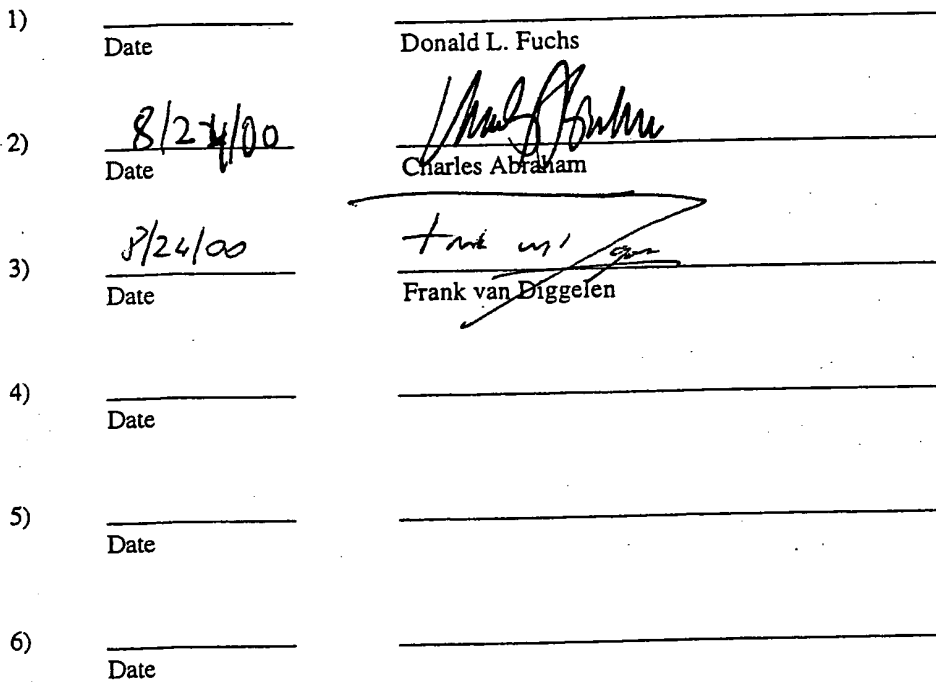 1)
Date Donald L. Fuchs
8/24/00
2)
Date Charles Abraham
8/24/00
3)
Date Frank van Diggelen
4)
Date
5)
Date
6)
Date